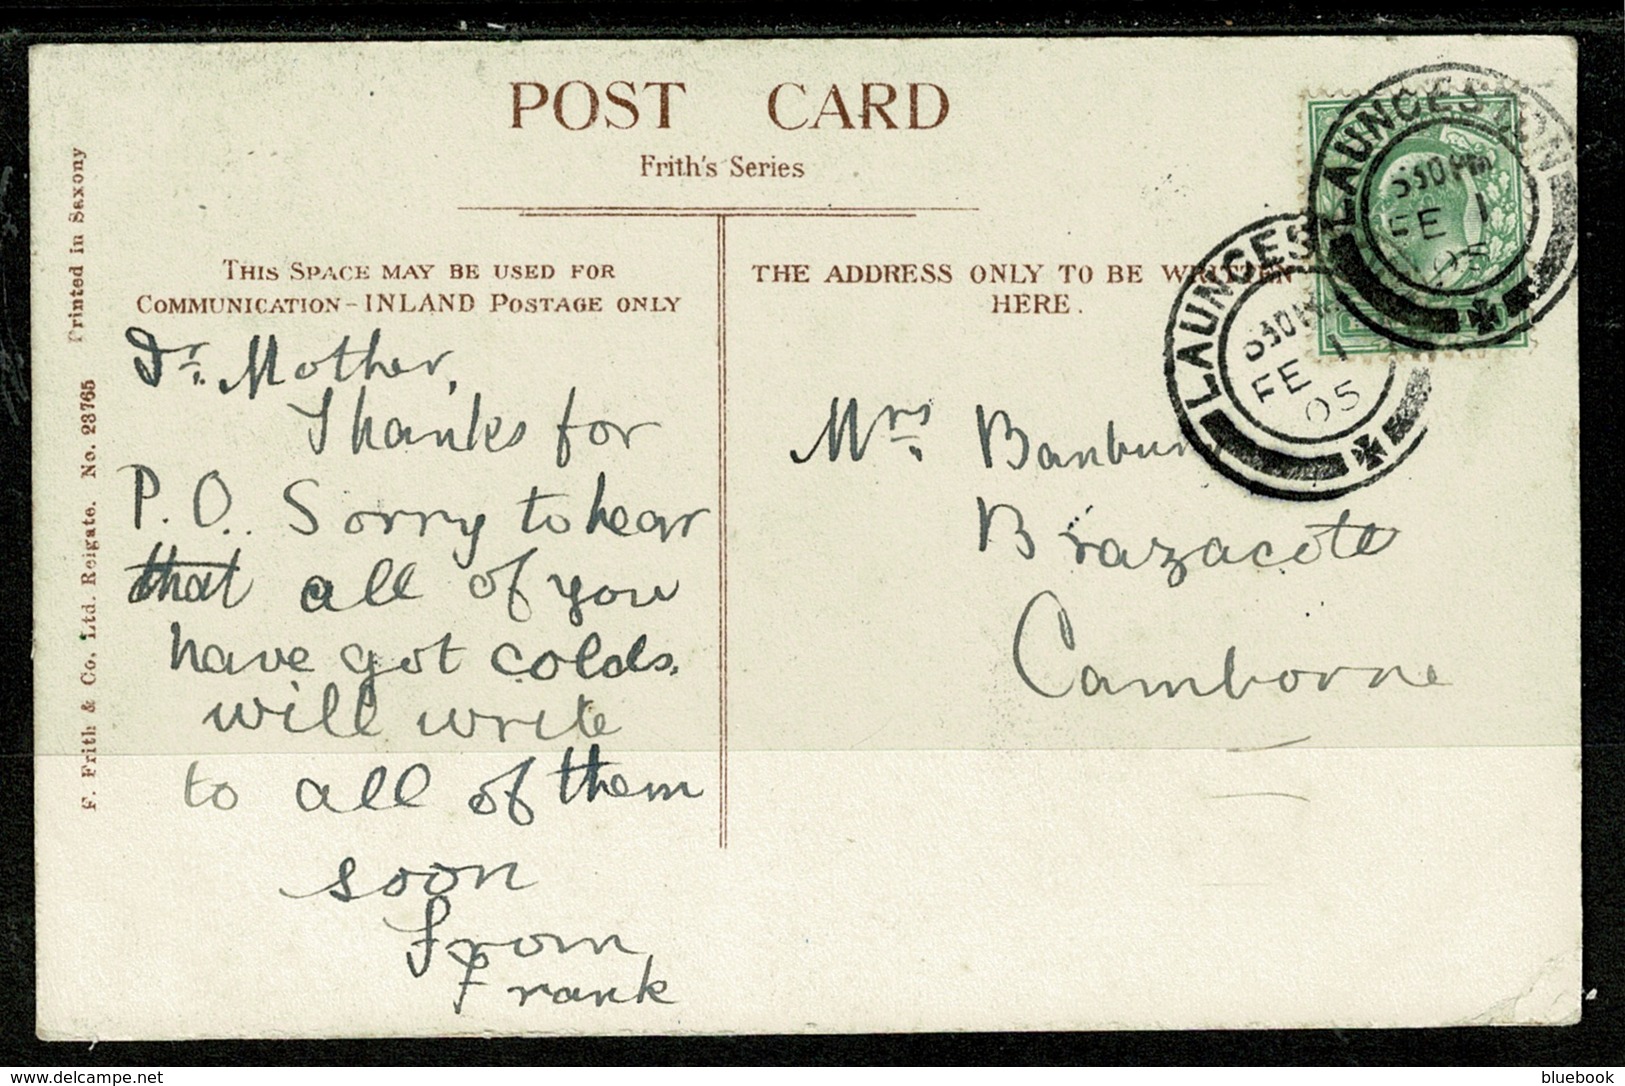 POST CARD
Frith's Series
THIS SPACE MAY BE USED FOR
COMMUNICATION - INLAND POSTAGE ONLY
THE ADDRESS ONLY TO BE WRITTEN
HERE.
Printed in Saxony
F. Frith & Co. Ltd. Reigate. No. 23765
Dr. Mother,
Thanks for
P.O.. Sorry to hear
that all of you
have got colds.
will write
to all of them
soon
From
Frank
Mrs Banbury
Brazacott
Camborne
LAUNCESTON
530 PM
FE 1
05
LAUNCES
530 PM
FE 1
05
www.delcampe.net
bluebook